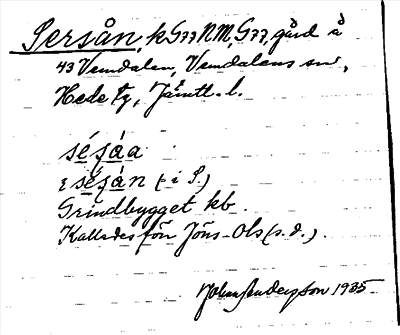 Persån, k G77 NM, G77, gård å
43 Vemdalen, Vemdalens sn,
Hede tg, Jämtl. l.
séṣá̱a
ɛ séṣá̱n (- i P.)
Grindbygget kb
Kallades för Jöns-Ols (s.d.).
Johan Anderszon 1935